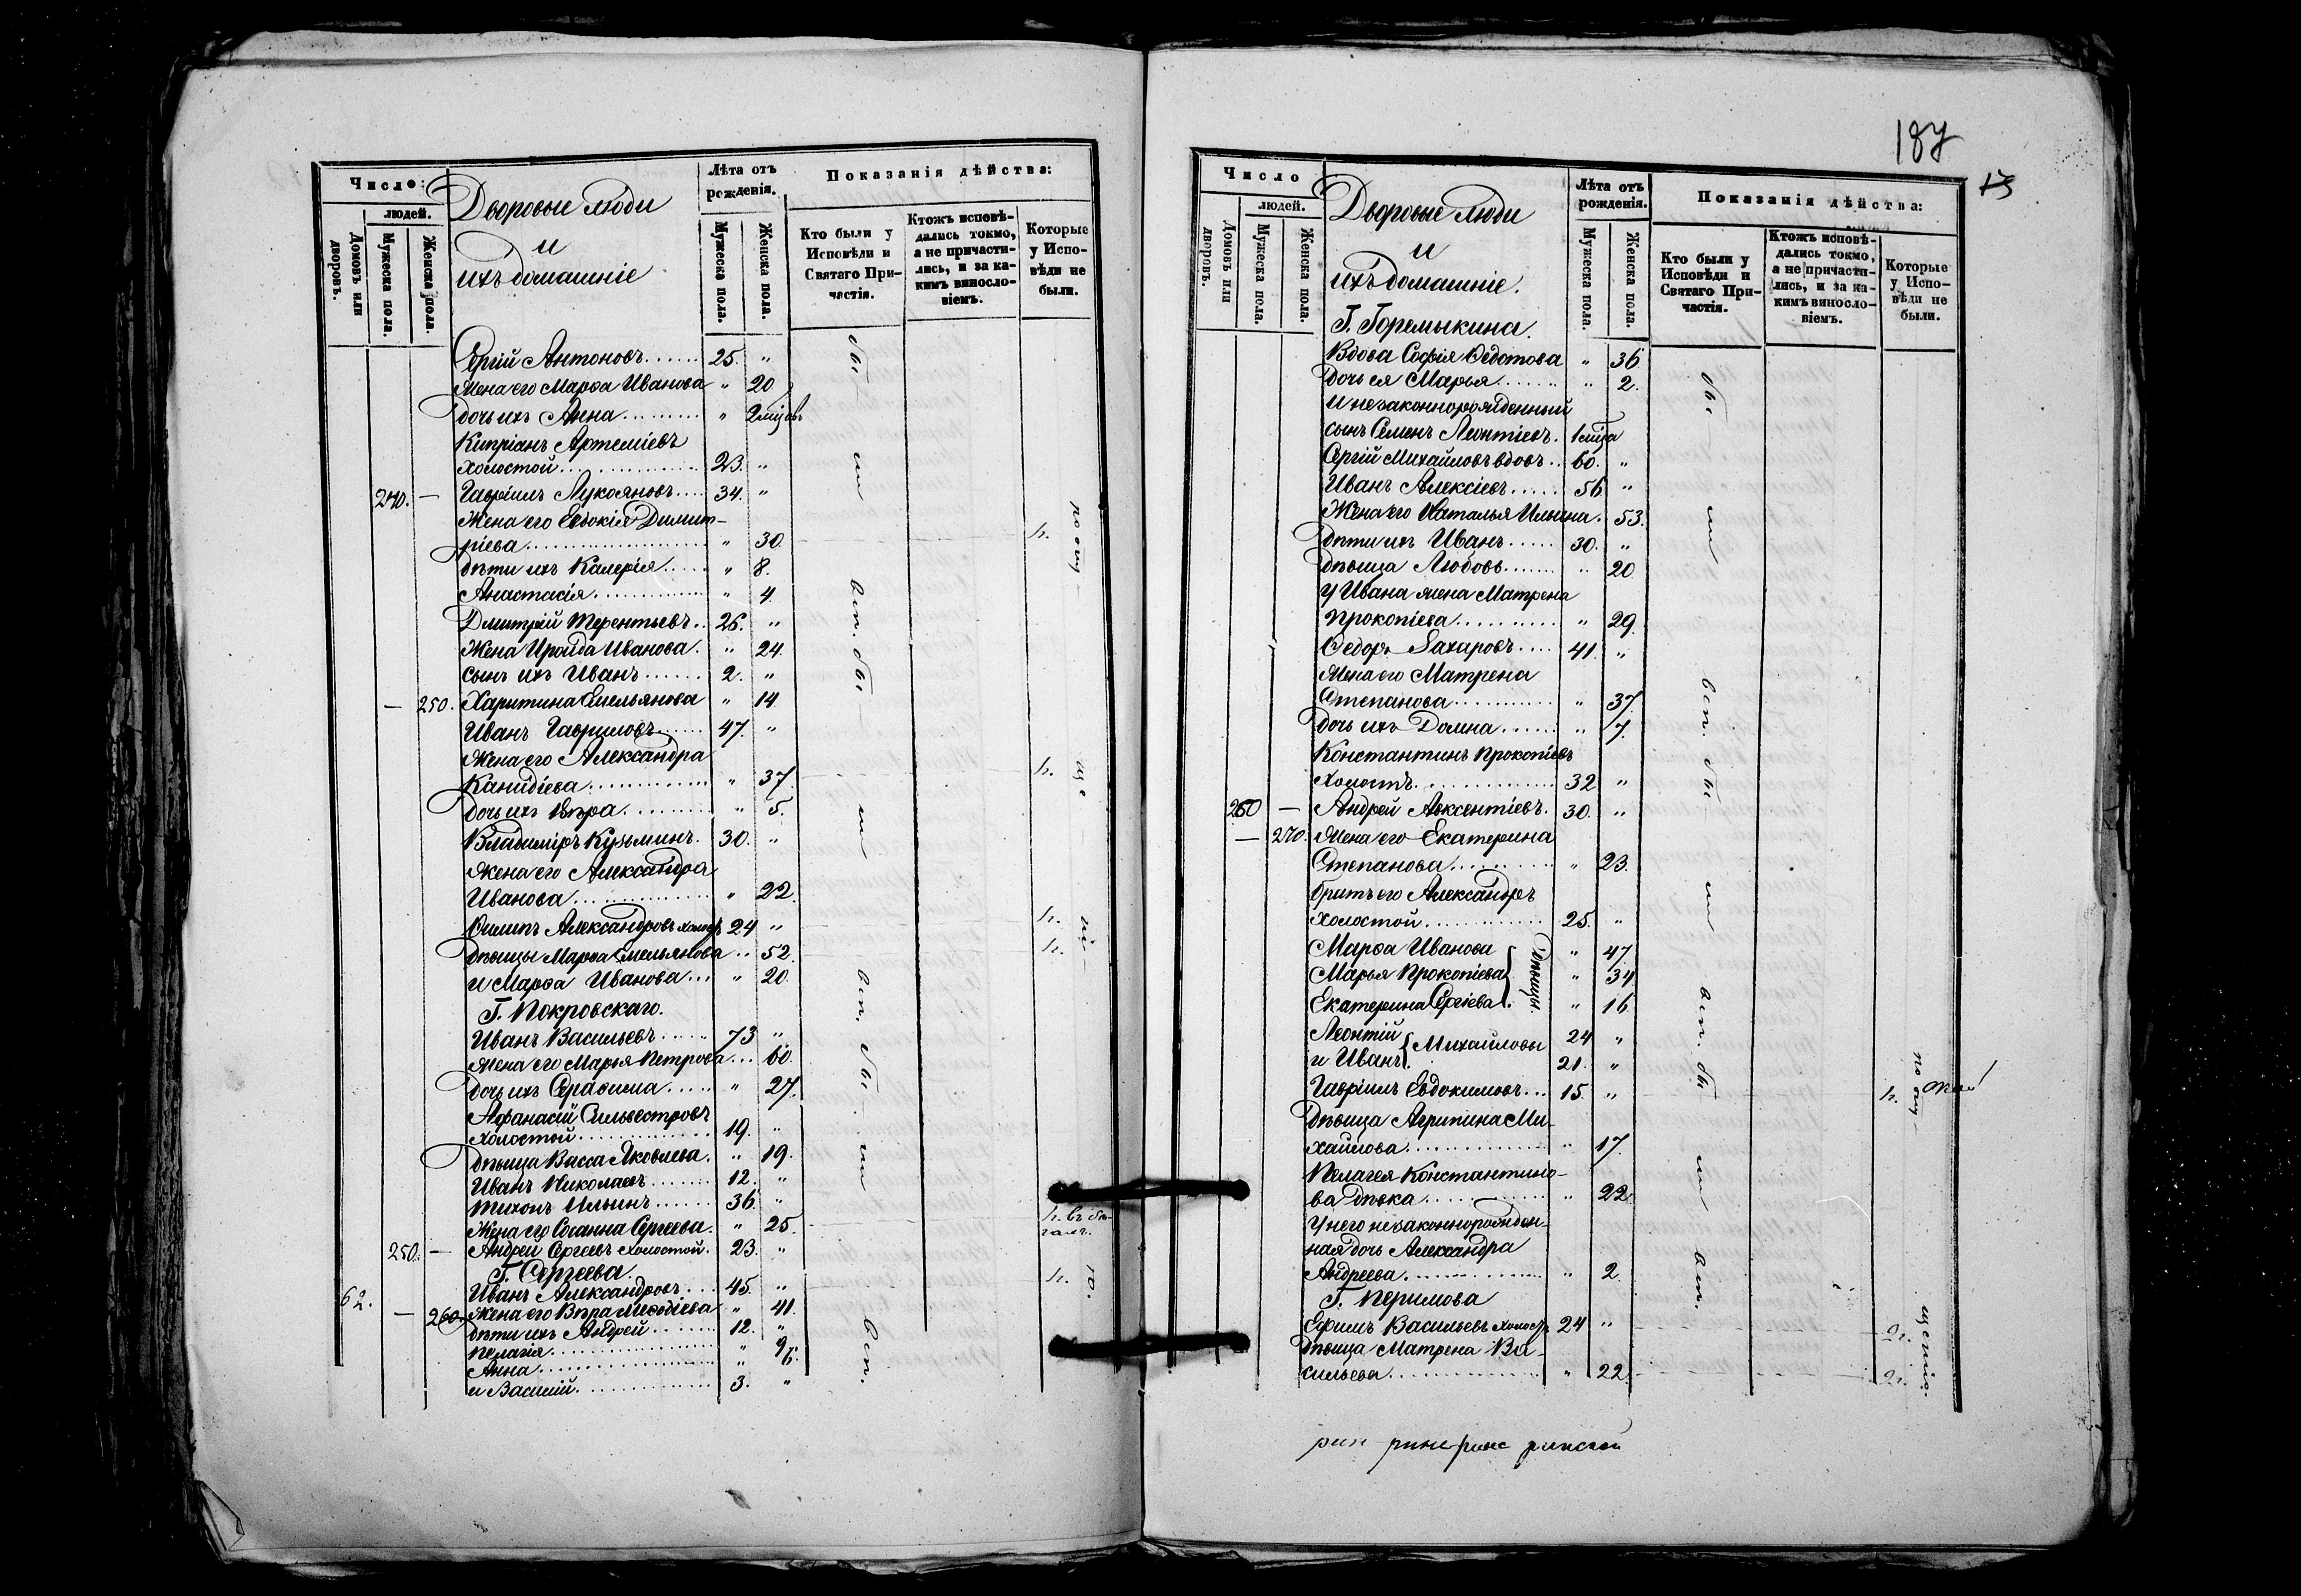 Число:
людей.
Домовъ или дворовъ.
Мужеска пола.
Женска пола.
Дворовые люди
и
ихъ домашніе
Лѣта отъ рожденія.
Мужеска пола.
Женска пола.
Показанія дѣйства:
Кто были у Исповѣди и Святаго Причастія.
Ктожъ исповѣдались токмо, а не причастились, и за какимъ винословіемъ.
Которые у Исповѣди не были.
Сергій Антоновъ 25. "
Жена его Марѳа Иванова " 20
дочь ихъ Анна " 2 мѣсцвъ
Кипріанъ Артеміевъ
холостой 23. "
240. — Гавріилъ Лукояновъ 34. "
Жена его Евдокія Димит-
ріева " 30. н.
дѣти ихъ Калерія " 8.
Анастасія " 4.
Дмитрій Терентьевъ 26. "
Жена Ироида Иванова " 24.
сынъ ихъ Иванъ 2. "
— 250. Харитина Емельянова " 14
Иванъ Гавриловъ 47. "
Жена его Александра
Канидіева " 37. н.
дочь ихъ Вѣра " 5.
Владиміръ Кузьминъ 30. "
Жена его Александра
Иванова " 22.
Филипъ Александровъ холостъ 24 " н.
дѣвицы Марѳа Емельянова " 52. н.
и Марѳа Иванова " 20.
Г. Покровскаго.
Иванъ Васильевъ 73 "
Жена его Марья Петрова 60.
дочь ихъ Серафима " 27.
Афанасій Сильвестровъ
холостой 19. "
дѣвица Васса Яковлева " 19.
Иванъ Николаевъ 12. "
Тихонъ Ильинъ 36. "
Жена его Сосанна Сергеева " 25. н. въ бѣ-
гахъ.
250. — Андрей Сергеевъ холостой 23. "
Г. Сергеева.
62. Иванъ Александровъ 45. " н.
— 260. Жена его Вѣра Меѳодіева " 41.
дѣти ихъ Андрей 12. "
Пелагія " 9
Анна " 6.
и Василій 3. "
187
Число
людей.
Домовъ или дворовъ.
Мужеска пола.
Женска пола.
Дворовые люди
и
ихъ домашніе.
Лѣта отъ рожденія.
Мужеска пола.
Женска пола.
Показанія дѣйства:
Кто были у Исповѣди и Святаго Причастія.
Ктожъ исповѣдались токмо, а не причастились, и за какимъ винословіемъ.
Которые у Исповѣди не были.
Г. Горемыкина.
Вдова Софія Ѳедотова " 36.
дочь ея Марья " 2.
и незаконнорожденный
сынъ Семенъ Леонтіевъ. 1 мсца
Сергій Михайловъ вдовъ 60. "
Иванъ Алексіевъ 56 "
Жена его Наталья Ильина. 53.
дѣти ихъ Иванъ 30. "
дѣвица Любовь " 20
у Ивана жена Матрена
Прокопіева " 29.
Ѳедоръ Захаровъ 41. "
Жена его Матрена
Степанова " 37.
дочь ихъ Домна " 7.
Константинъ Прокопіевъ
холостъ 32 "
260 — Андрей Авксентіевъ. 30. "
— 270. Жена его Екатерина
Степанова " 23.
братъ его Александръ
холостой 25. "
Марѳа Иванова " 47
Марья Прокопіева " 34
Екатерина Сергіева " 16
дѣвицы.
Леонтій 24 "
и Иванъ 21. "
Михайловы
Гавріилъ Евдокимовъ 15. " н.
дѣвица Агрипина Ми-
хайлова " 17.
Пелагея Константино-
ва дѣвка " 22.
у него незаконнорожден-
ная дочь Александра
Андреева " 2.
Г. Перимова
Ефимъ Васильевъ холостъ 24 "
дѣвица Матрена Ва-
сильева " 22.